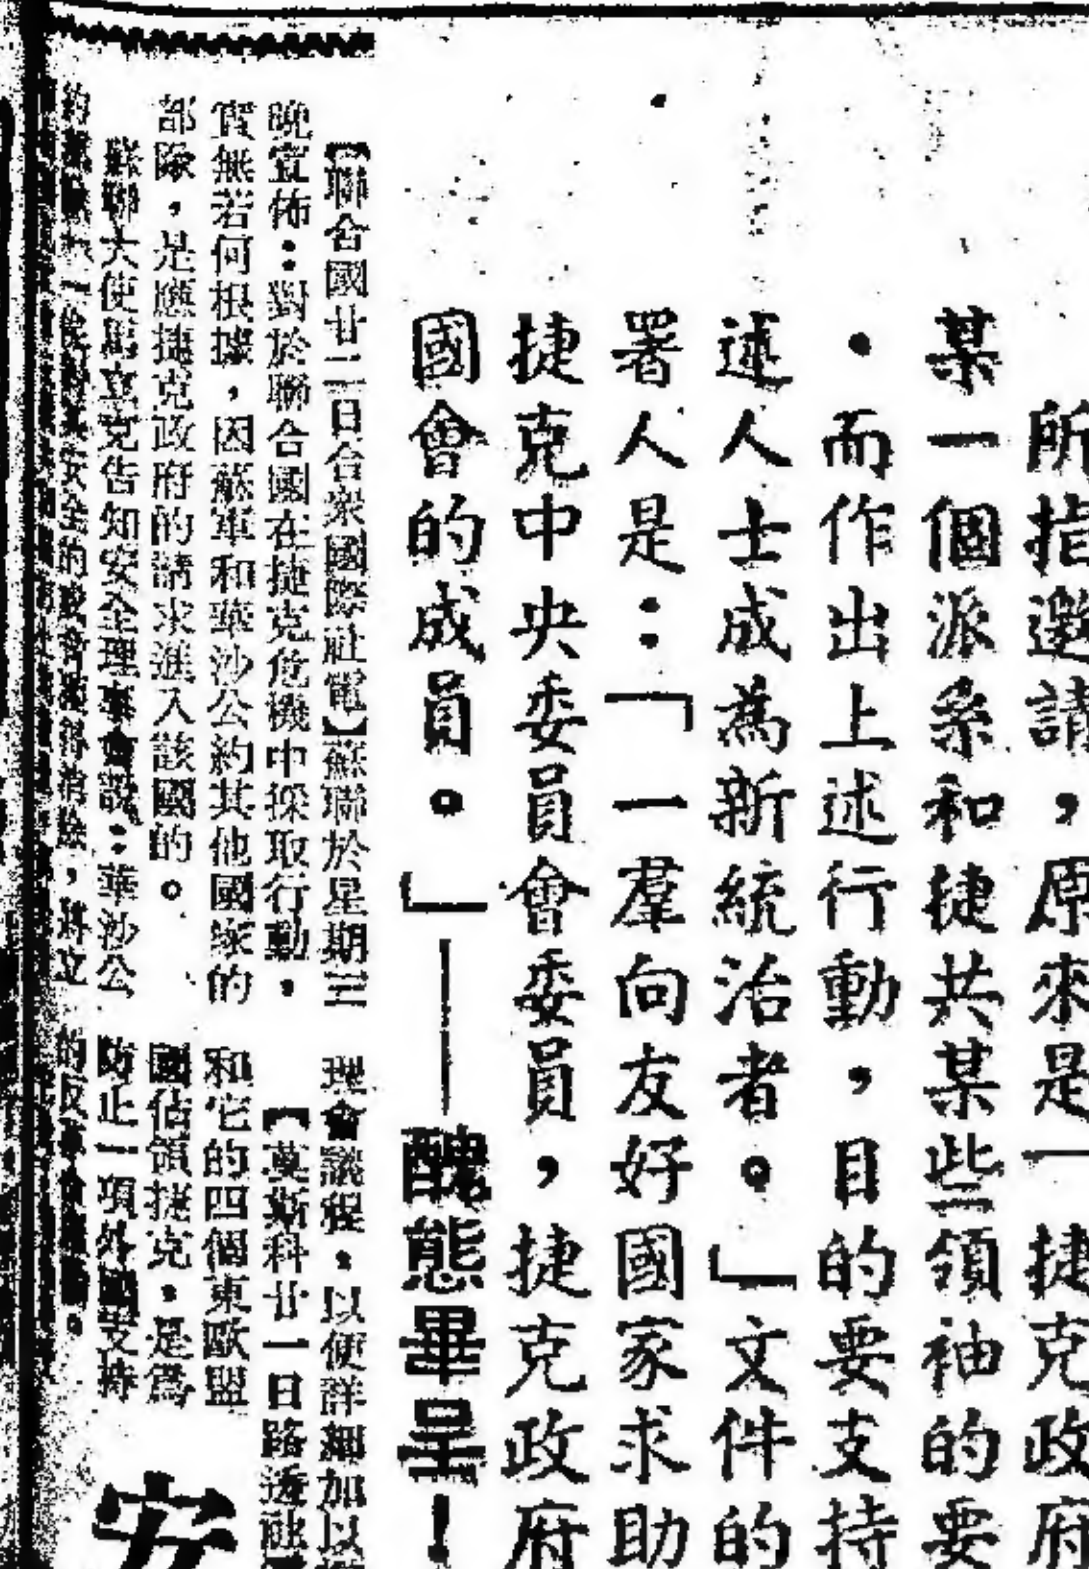 所指邀請，原來是一捷克政府
某一個派系和捷共某些領袖的要
・而作出上述行動，目的要支持
述人士成為新統治者。」文件的
署人是：「一羣向友好國家求助
捷克中央委員會委員，捷克政府
國會的成員。」——醜態畢呈！
【聯合國廿二日合衆國際社電】蘇聯於星期三
晚宣佈：對於聯合國在捷克危機中採取行動，
實無若何根據，因蘇軍和華沙公約其他國家的
部隊，是應捷克政府的請求進入該國的。
蘇聯大使馬立克告知安全理事會說：華沙公
理會議程，以便詳細加以
【莫斯科廿一日路透社
和它的四個東歐盟
國佔領捷克，是爲
防止一項外國支持
的反革命
安